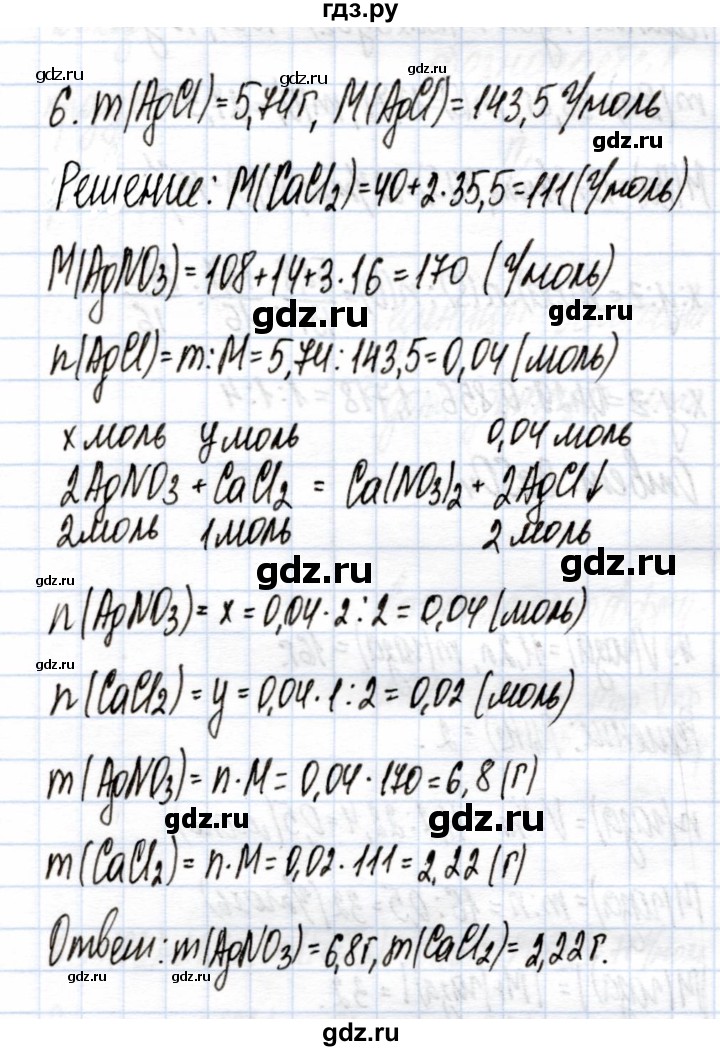 гдз.ру
gdz.ru
6. m(AgCl)=5,74г, M(AgCl)=143,5 г/моль
gdz.ru
Решение: M(CaCl₂)=40+2·35,5=111(г/моль)
gdz.ru
M(AgNO₃)=108+14+3·16=170 (г/моль)
gdz.ru gdz.ru
n(AgCl)=m:M=5,74:143,5=0,04(моль)
x моль y моль 0,04 моль
2AgNO₃+CaCl₂ = Ca(NO₃)₂+2AgCl↓
2моль 1моль 2 моль
gdz.ru gdz.ru
gdz.ru
n(AgNO₃)=x=0,04·2:2=0,04(моль)
gdz.ru
n(CaCl₂)=y=0,04·1:2=0,02(моль)
m(AgNO₃)=n·M=0,04·170=6,8(г)
gdz.ru gdz.ru
m(CaCl₂)=n·M=0,02·111=2,22(г)
Ответ: m(AgNO₃)=6,8г, m(CaCl₂)=2,22г.
gdz.ru gdz.ru
gdz.ru